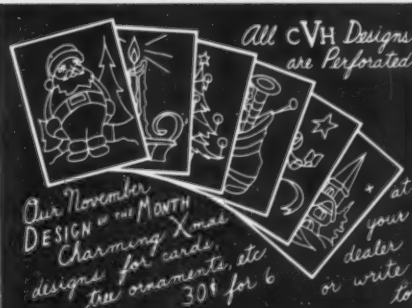 All CVH Designs
are Perforated
Our November
DESIGN OF THE MONTH
Charming Xmas
designs for cards,
tree ornaments, etc
30¢ for 6
at
your
dealer
or write
to